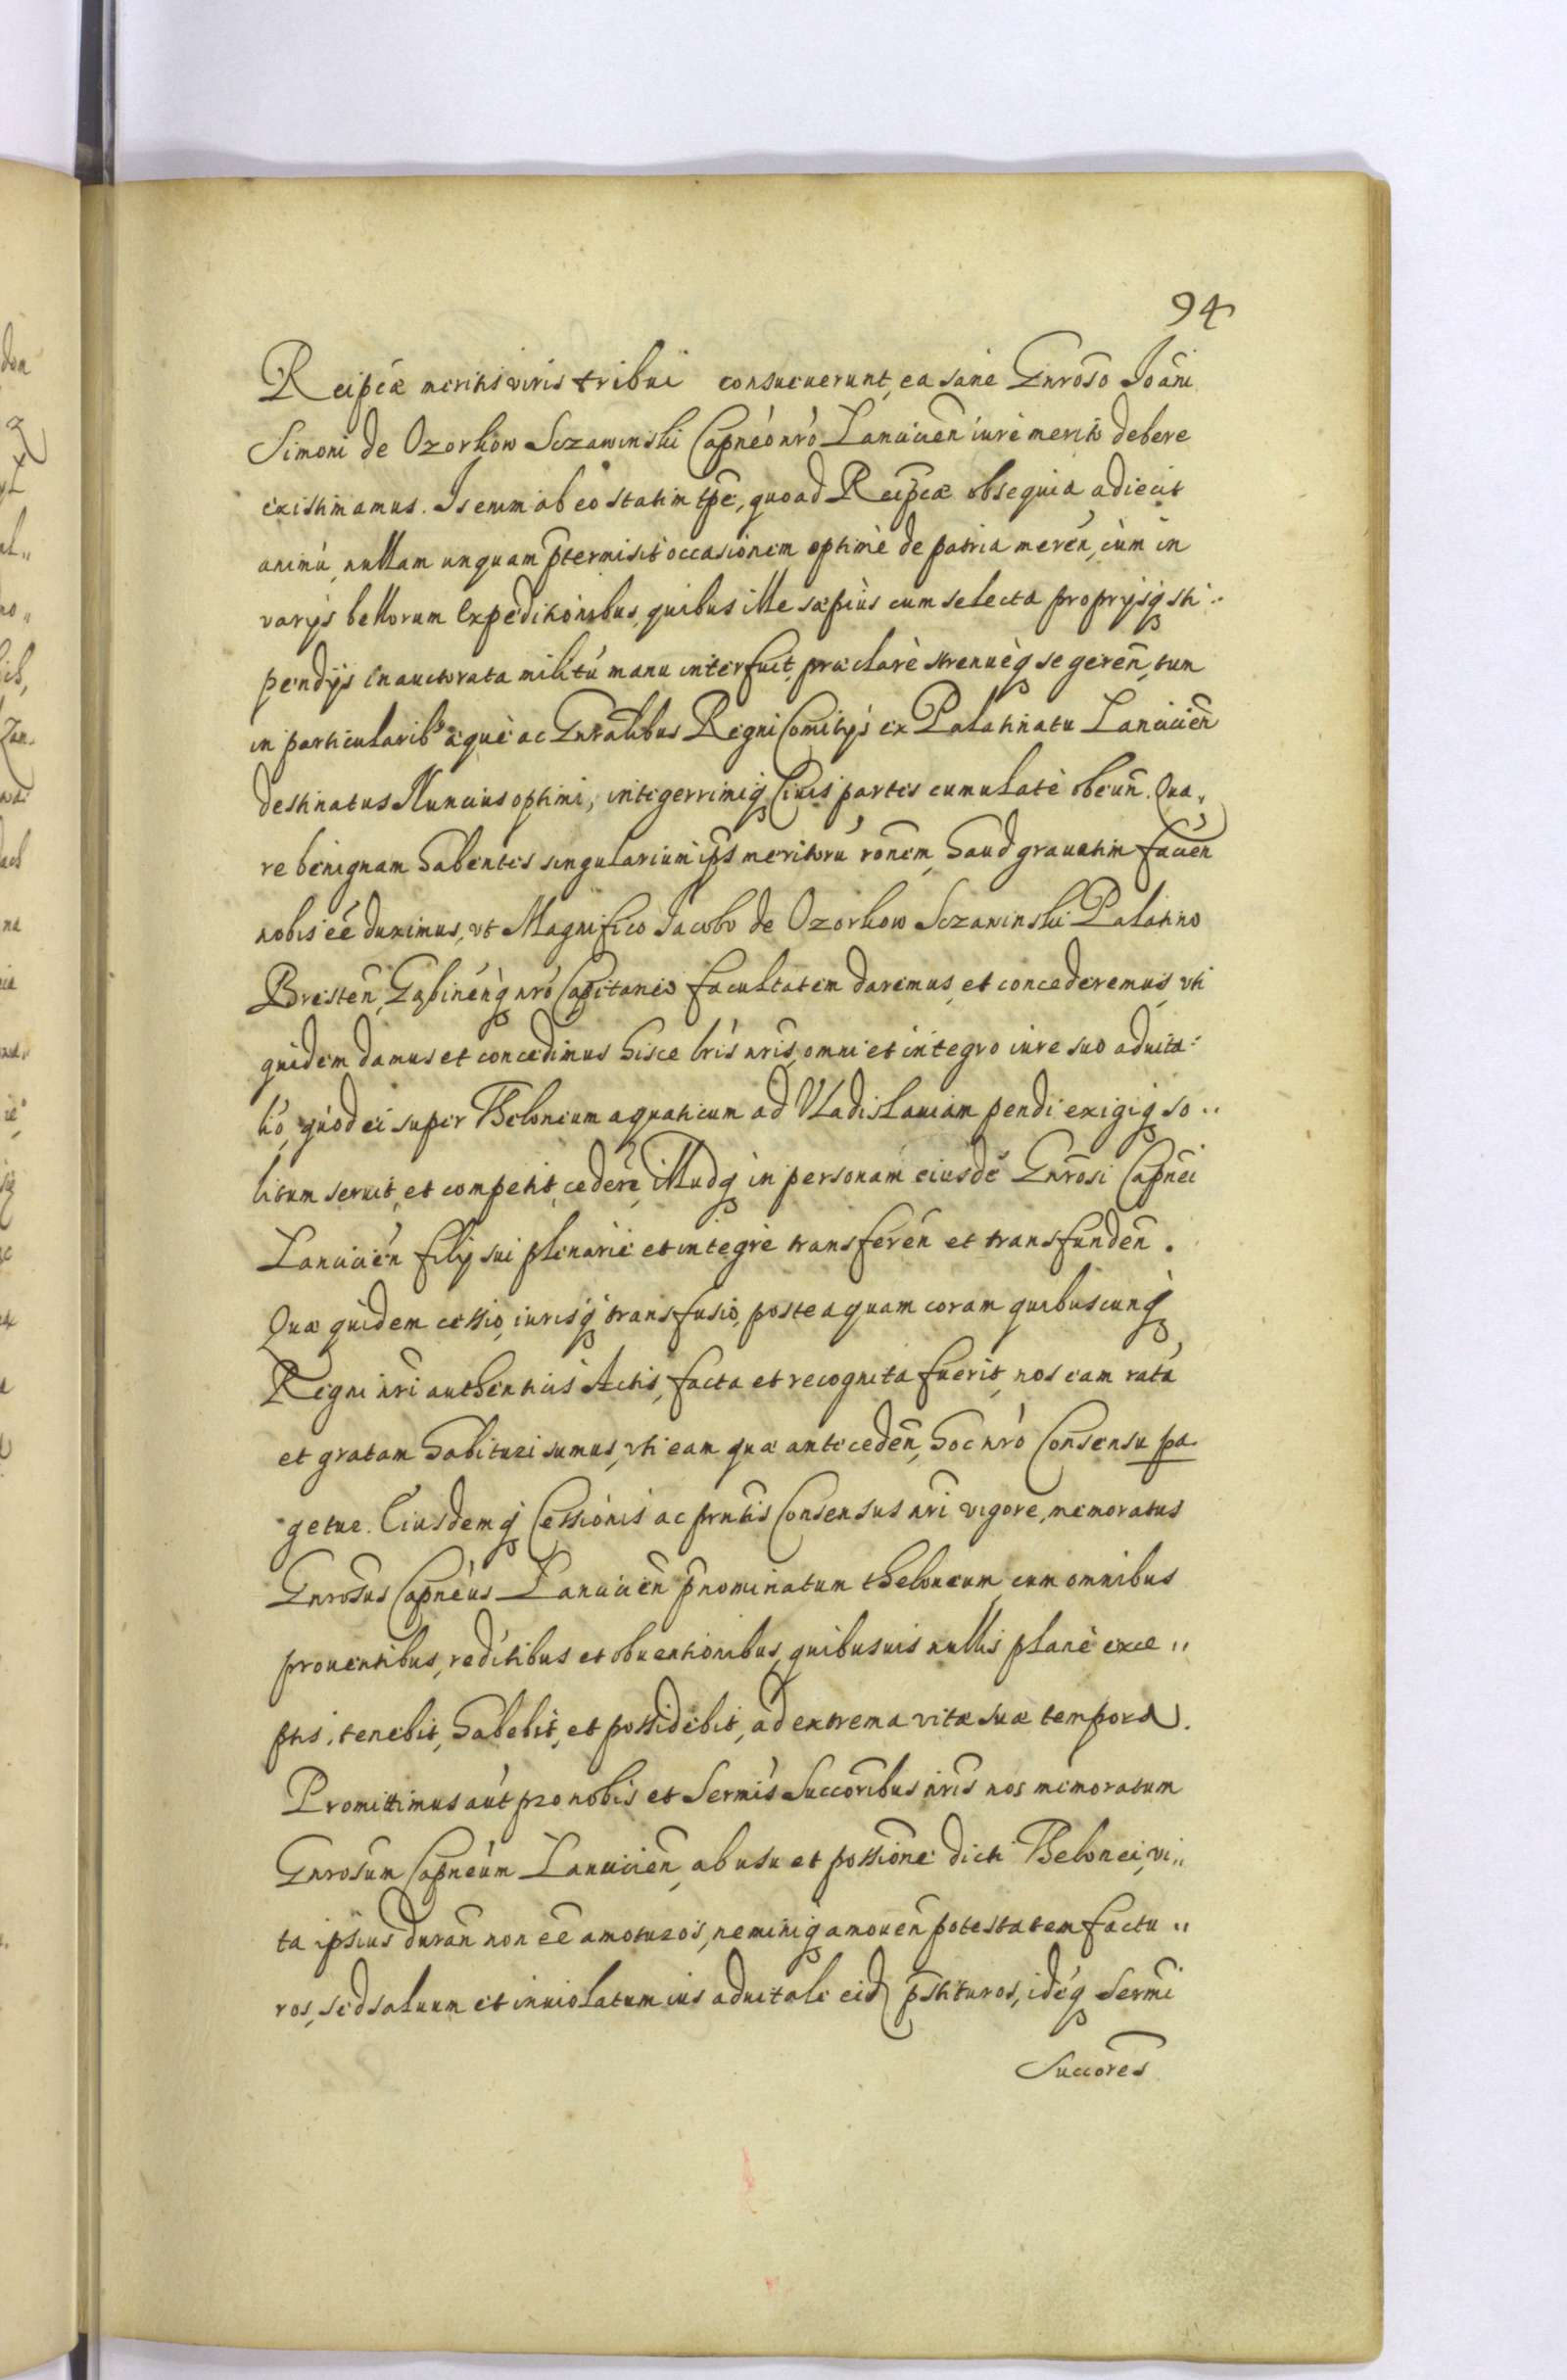 94
Reipcæ meritis viris tribui consueuerunt, ea sane Gnroso Joañi
Simoni de Ozorkow Sczawinski Capneo nro Lancicień iure merito debere
existimamus. Is enim ab eo statim tpe, quo ad Reipcæ obsequia adiecit
animū, nullam unquam ptermisit occasionem optimè de patria meren̄, cùm in
varijs bellorum Expeditionibus, quibus ille sæpius cum selecta proprijsq sti„
pendijs inauctorata militū manu interfuit, præclarè strenuèq se geren̄, tum
in particularib9 æquè ac Gnralibus Regni Comitijs ex Palatinatu Lancicień
destinatus Nuncius optimi, integerrimiq Ciuis partes cumulatè obeun̄. Qua„
re benignam habentes singularium ips meritorū ronem, haud grauatim facień
nobis eē duximus, vt Magnifico Jacobo de Ozorkow Sczawinski Palatino
Bresten̄, Gąbinen̄q nro Capitaneo facultatem daremus, et concederemus, vti
quidem damus et concedimus hisce lris nris, omni et integro iure suo aduita„
lio, quod ei super Theloneum aquaticum ad Vladislauiam pendi exigiq so„
litum seruit, et competit, ceden̄, illudq in personam eiusdē Gnrosi Capnei
Lancicień filij sui plenariè et integrè transferen̄ et transfunden̄.
Quæ quidem cessio, iurisq transfusio, posteaquam coram quibuscunq
Regni nri authenticis Actis, facta et recognita fuerit, nos eam ratā
et gratam habituri sumus, vti eam quæ anteceden̄, hoc nrò Consensu pa
getur. Eiusdemq Cessionis ac prntis Consensus nri vigore, memoratus
Gnrosus Capneus Lancicień pnominatum theloneum, cum omnibus
prouentibus, reditibus et obuentionibus, quibusuis nullis planè exce„
ptis, tenebit, habebit, et possidebit, ad extrema vitæ suæ tempora.
Promittimus aut̄ pro nobis et Sermis Succoribus nris nos memoratum
Gnrosum Capneum Lancicień, ab usu et possione dicti Thelonei, vi„
ta ipsius duran̄ non eē amoturos, neminiq amouen̄ potestatem factu„
ros, sed saluum et inuiolatum ius aduitale eid pstituros, idēq Sermi
Succores